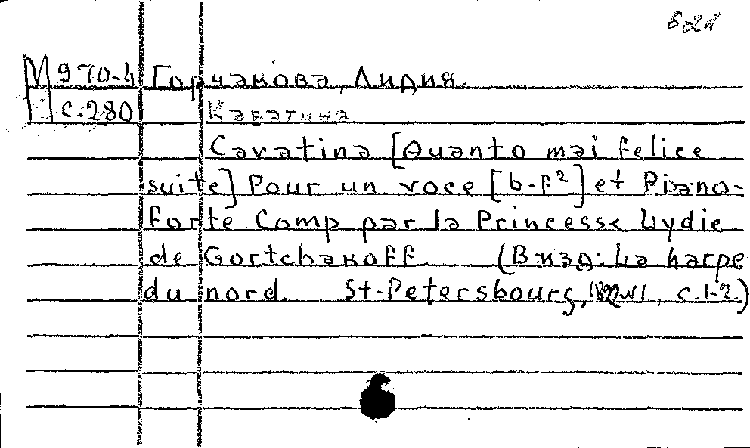 М 970-4 Горчакова, Лидия.
с.280 Каватина
Cavatina [Quanto mai felice
suite] Pour un voce [b-f²] et Piano-
forte Comp par la Princesse Lydie
de Gortchakoff. (В изд: La harpe
du nord. St-Petersbourg, с.1-2.)